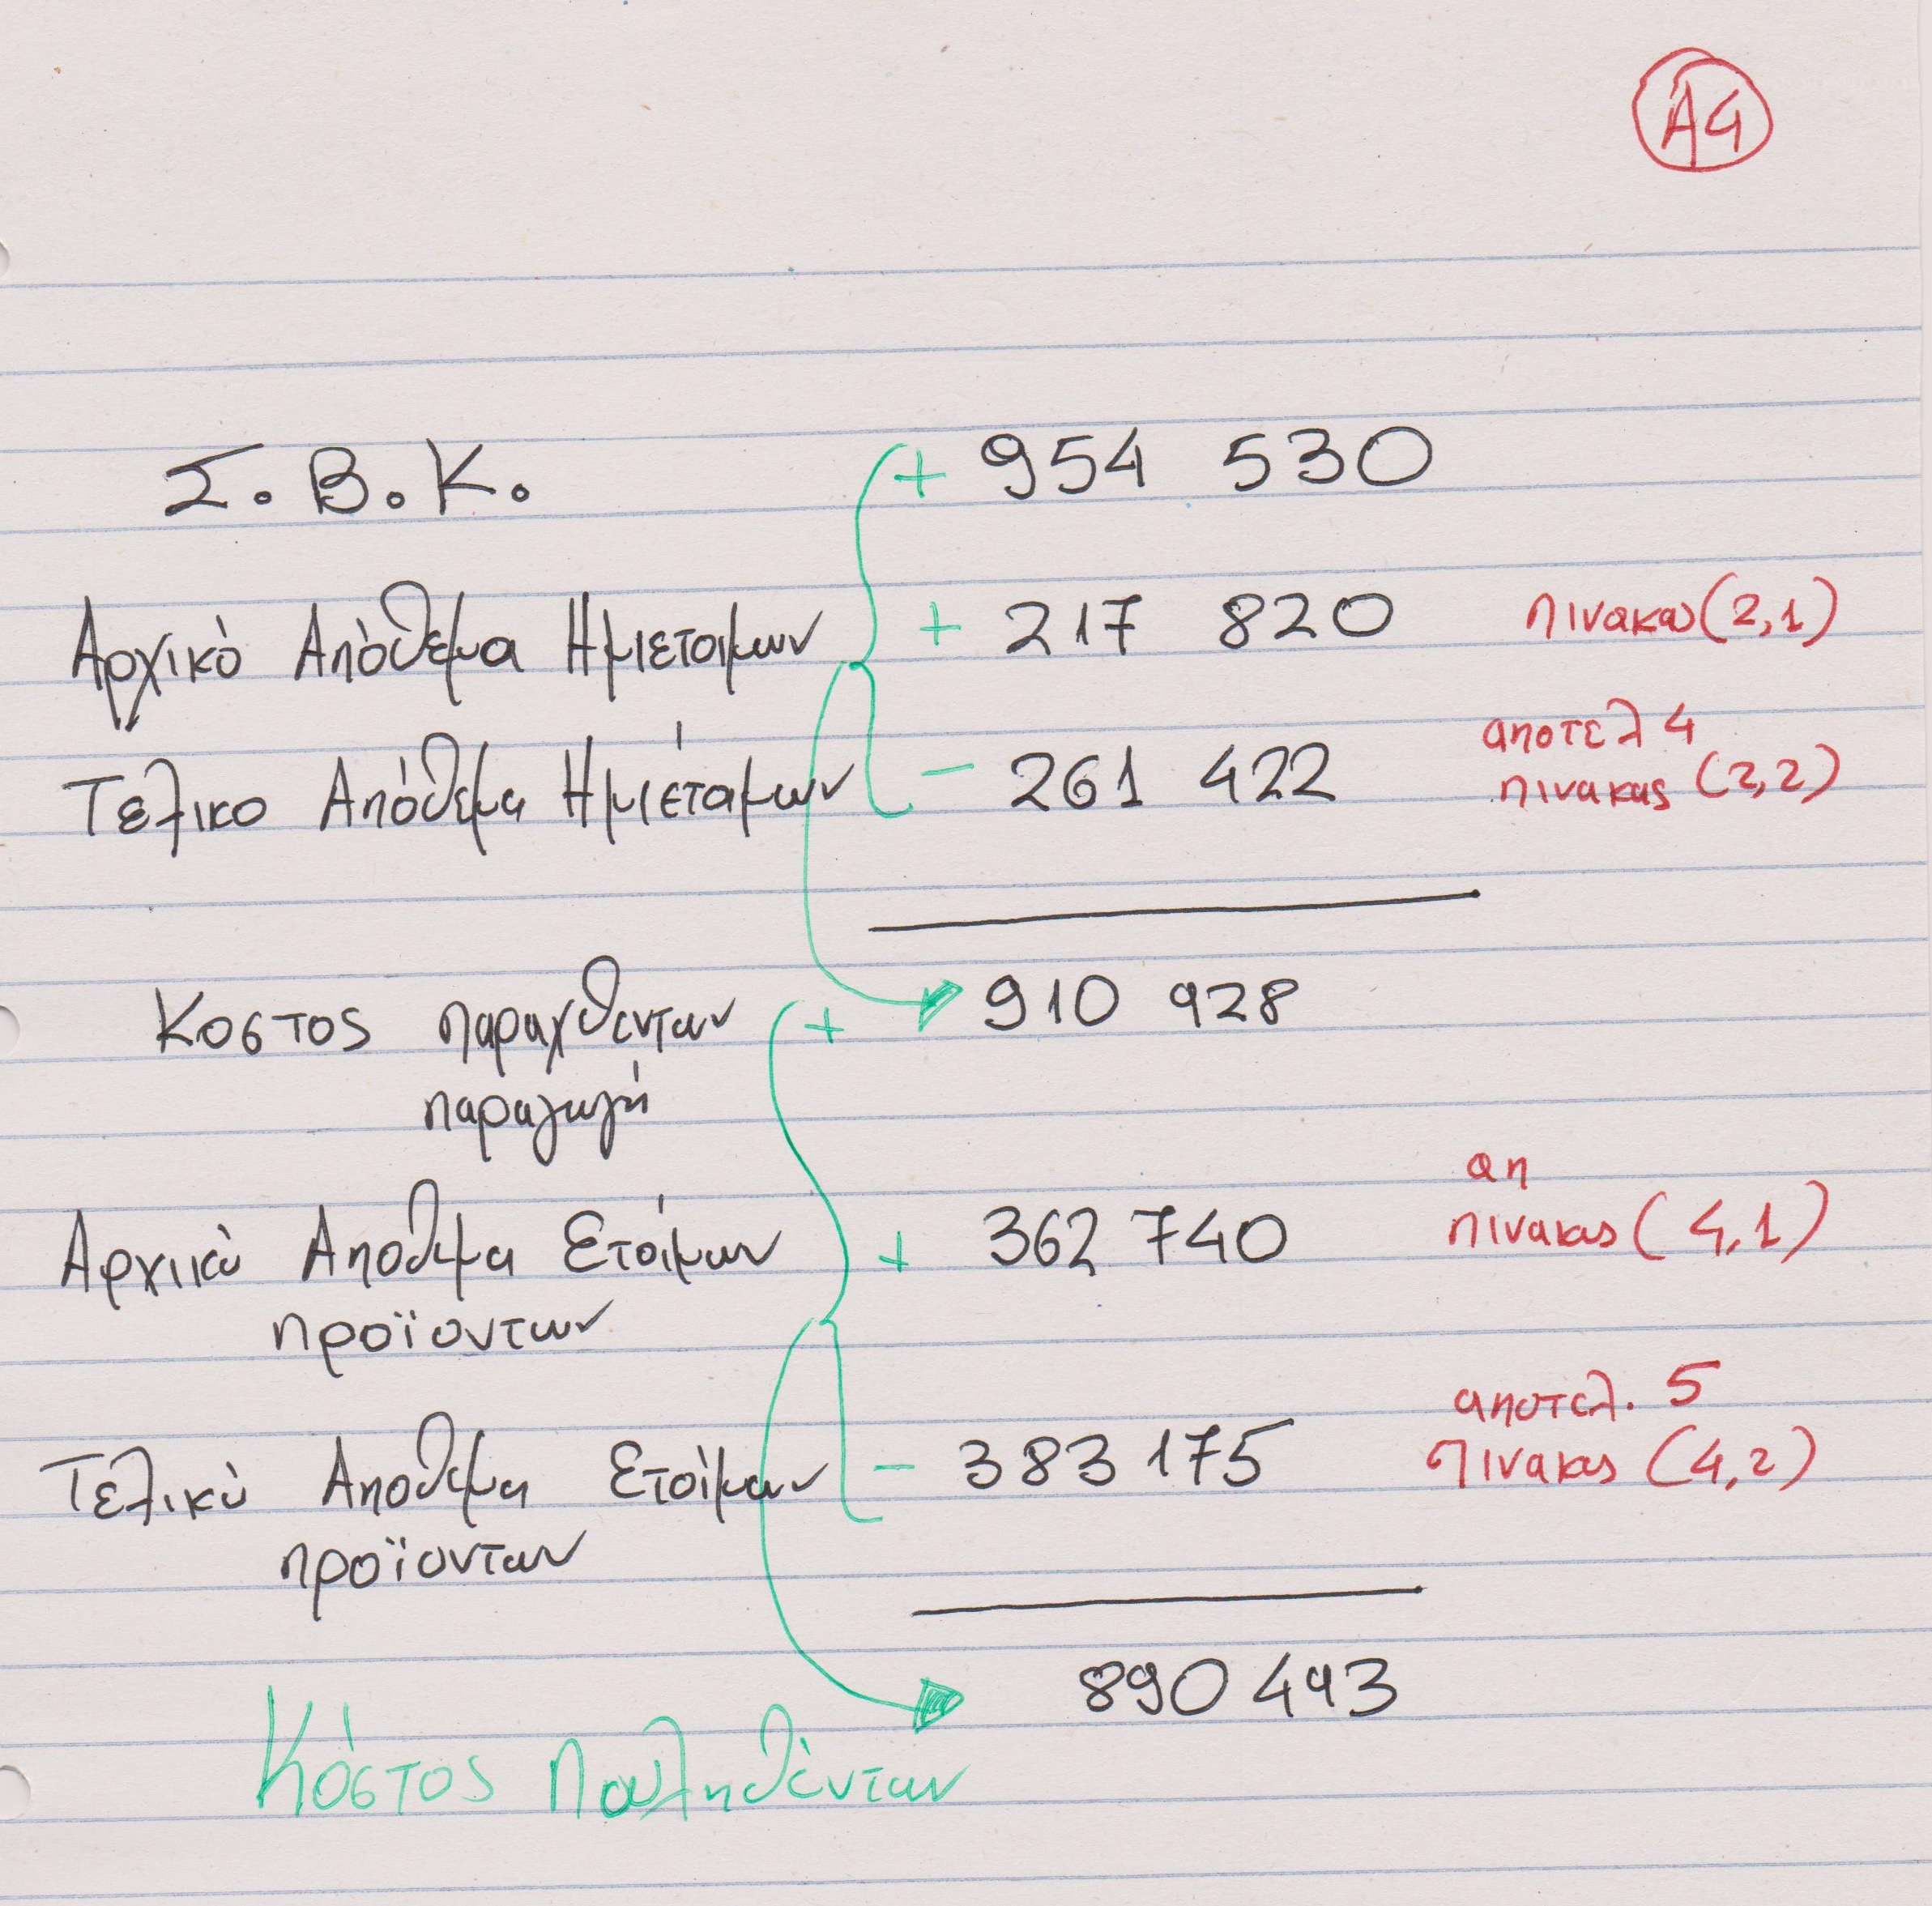 Α4
Σ.Β.Κ. + 954 530
Αρχικό Απόθεμα Ημιετοιμων + 217 820 πινακας (2,1)
αποτελ 4
Τελικο Απόθεμα Ημιέτοιμων - 261 422 πινακας (2,2)
Κοστος παραχθεντων + 910 928
παραγωγή
απ
Αρχικό Αποθεμα Ετοίμων + 362 740 πινακας (4,1)
προϊοντων
αποτελ. 5
Τελικό Αποθεμα Ετοίμων - 383 175 Πινακας (4,2)
προϊοντων
890 493
Κόστος Πωληθέντων